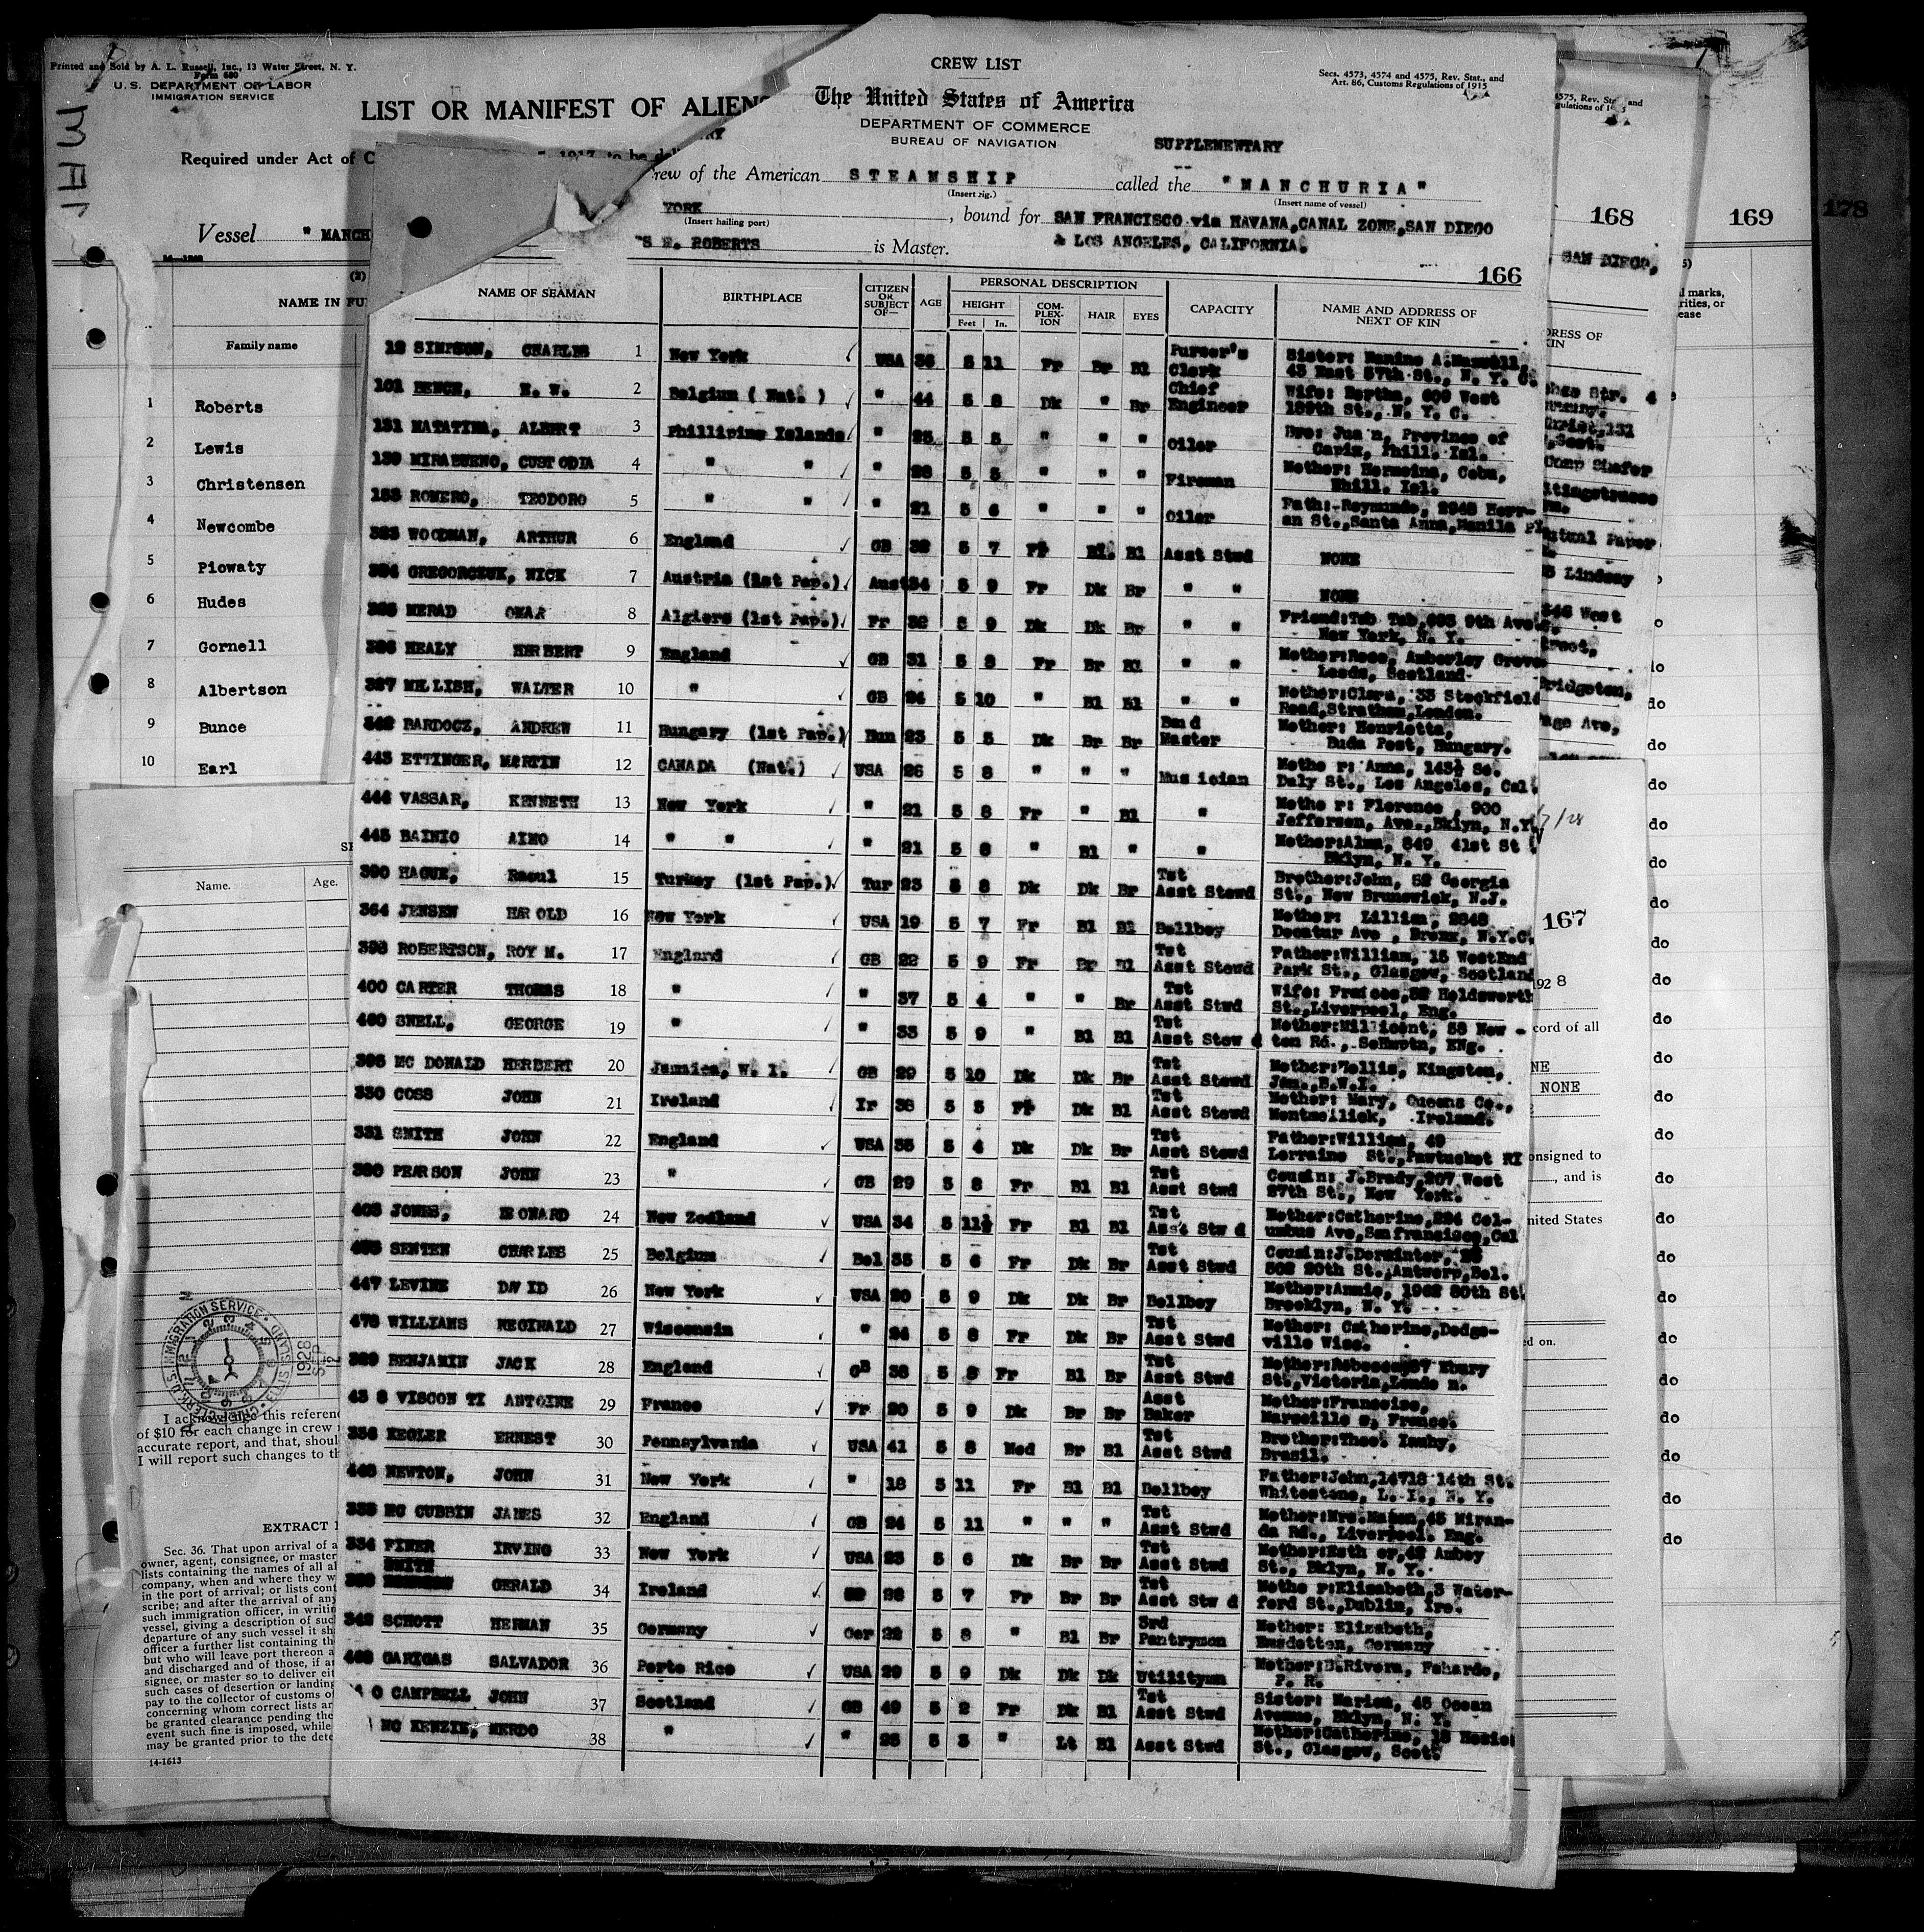 Printed and Sold by A. L. Russell, Inc., 13 Water Street, N. Y.
Form 680
U. S. DEPARTMENT OF LABOR
IMMIGRATION SERVICE
LIST OR MANIFEST OF ALIENS
Required under Act of C
Vessel " MANCH
(2)
NAME IN FU
Family name
1 Roberts
2 Lewis
3 Christensen
4 Newcombe
5 Piowaty
6 Hudes
7 Gornell
8 Albertson
9 Bunce
10 Earl
CREW LIST
Secs. 4573, 4574 and 4575, Rev. Stat., and
Art. 86, Customs Regulations of 1915
The United States of America
DEPARTMENT OF COMMERCE
BUREAU OF NAVIGATION
SUPPLEMENTARY
rew of the American STEAMSHIP called the "MANCHURIA"
(Insert rig.) (Insert name of vessel)
YORK , bound for SAN FRANCISCO via HAVANA, CANAL ZONE, SAN DIEGO
(Insert hailing port)
S E. ROBERTS is Master. & LOS ANGELES, CALIFORNIA.
166
NAME OF SEAMAN BIRTHPLACE CITIZEN OR SUBJECT OF— AGE PERSONAL DESCRIPTION CAPACITY NAME AND ADDRESS OF NEXT OF KIN
HEIGHT COMPLEXION HAIR EYES
Feet In.
12 SIMPSON, CHARLES 1 New York USA 36 5 11 Fr Br Bl Purser's Clerk Sister: A. Maxwell, 43 East 57th St., N. Y. C.
101 H. W. 2 Belgium ( Nat. ) " 44 5 8 Dk " Br Chief Engineer Wife: Bertha, 600 West 189th St., N. Y. C.
131 MATATINA, ALBERT 3 Phillipine Islands " 25 5 5 " " " Oiler Bro: Jua n, Province of Capiz, Phill. Isl.
139 CUSTODIA 4 " " " 28 5 5 " " " Fireman Mother: Cebu, Phill. Isl.
153 ROMERO, TEODORO 5 " " " 21 5 6 " " " Oiler Fath: Reymundo, 2948 Herran St., Santa Anna, Manila PI
323 WOODMAN, ARTHUR 6 England GB 5 7 Fr Bl. Bl Asst Stwd NONE
324 GREGORCZUK, NICK 7 Austria (1st Pap.) Aust 34 5 9 Fr Dk Br " " NONE
MERAD OMAR 8 Algiers (1st Pap.) Fr 32 5 9 Dk Dk Br " " Friend: 9th Ave, New York, N. Y.
HEALY HERBERT 9 England GB 31 5 8 Fr Br Bl " " Mother: Rose, Amberley Grove Leeds, Scotland
MELLISH, WALTER 10 " GB 24 5 10 " Bl Bl " " Mother: Clara, 33 Stockfield Road, Strathem, London.
BARDOCZ, ANDREW 11 Hungary (1st Pap.) Hun 23 5 5 Dk Br Br Band Master Mother: Henrietta, Buda Pest, Hungary.
443 ETTINGER, MARTIN 12 CANADA (Nat.) USA 26 5 8 " " " Musician Mother: Anna, 143½ So. Daly St., Los Angeles, Cal.
444 VASSAR, KENNETH 13 New York " 21 5 8 Fr " Bl " Mother: Florence, 900 Jefferson, Ave., Bklyn, N.Y.
445 BAINIO AINO 14 " " " 21 5 8 " Bl " " Mother: Alma, 849 41st St Bklyn, N. Y.
390 HAGUE, Raoul 15 Turkey (1st Pap.) Tur 23 5 8 Dk Dk Br Tst Asst Stewd Brother: John, 52 Georgia St., New Brunswick, N.J.
364 JENSEN HAROLD 16 New York USA 19 5 7 Fr Bl Bl Bellboy Mother: Lillian, 2648 Decatur Ave, Bronx, N.Y.C.
393 ROBERTSON, ROY M. 17 England GB 22 5 9 Fr Br Bl Tst Asst Stewd Father: William, 15 WestEnd Park St., Glasgow, Scotland
400 CARTER THOMAS 18 " " 37 5 4 " " Br Tst Asst Stwd Wife: Frances, Holdsworth St., Liverpool, Eng.
SNELL, GEORGE 19 " " 33 5 9 " Bl Bl Tst Asst Stewd Mother: Millicent, 58 Newton Rd., So Hmptn, ENg.
395 MC DONALD HERBERT 20 Jamaica, W. I. GB 29 5 10 Dk Dk Br Tst Asst Stewd Mother: Kingston, Jam., B.W.I.
330 GOSS JOHN 21 Ireland Ir 36 5 5 Fr Dk Bl Tst Asst Stewd Mother: Mary, Queens Co., Ireland.
331 SMITH JOHN 22 England USA 35 5 4 Dk Dk Br Tst Asst Stewd Father: William, 49 Lorraine St., Pawtucket RI
PEARSON JOHN 23 " GB 29 5 8 Fr Bl Bl Tst Asst Stwd Cousin: J. Brady, 207 West 27th St., New York.
403 JONES, LEONARD 24 New Zealand USA 34 5 11½ Fr Bl Bl Tst Asst Stwd Mother: Catherine, 224 Columbus Ave, San francisco, Cal
SENTEN CHARLES 25 Belgium Bel 35 5 6 Fr Dk Br Tst Asst Stwd Cousin: 20th St., Antwerp, Bel.
447 LEVINE DAVID 26 New York USA 20 5 9 Dk Dk Br Bellboy Mother: Annie, 1962 80th St. Brooklyn, N. Y.
WILLIAMS REGINALD 27 Wisconsin " 24 5 8 Fr Dk Br Tst Asst Stwd Mother: Catherine, Dodgeville Wisc.
BENJAMIN JACK 28 England GB 38 5 8 Fr Bl Br Tst Asst Stwd Mother: Rebecca, Ebury St., Victoria, Londo n.
VISCONTI ANTOINE 29 France Fr 20 5 9 Dk Br Br Asst Baker Mother: Francoise, Marseille s, France.
336 KEGLER ERNEST 30 Pennsylvania USA 41 5 8 Med Br Bl Tst Asst Stwd Brother: Theo. Brasil.
NEWTON, JOHN 31 New York " 18 5 11 Fr Bl Bl Bellboy Father: John, 14718 14th St. Whitestone, L. I., N. Y.
MC CUBBIN JAMES 32 England GB 24 5 11 " " " Tst Asst Stwd Mother: Mrs. 45 Miranda Rd., Liverpool. Eng.
334 PINER IRVING 33 New York USA 23 5 6 Dk Br Br Tst Asst Stwd Mother: Esth er, St., Bklyn, N. Y.
SMITH GERALD 34 Ireland 5 7 Fr Br Br Tst Asst Stw d Mother: Elizabeth, 3 Waterford St., Dublin, Ire.
342 SCHOTT HERMAN 35 Germany Ger 22 5 8 " Bl Br 3rd Pantryman Mother: Elizabeth, Germany
GARIGAS SALVADOR 36 Porto Rico USA 29 5 9 Dk Dk Dk Utilityman Mother: B. Rivera, Fahardo, P. R.
CAMPBELL JOHN 37 Scotland GB 49 5 2 Fr Dk Bl Tst Asst Stwd Sister: Marion, 45 Ocean Avenue, Bklyn, N. Y.
MC KENZIE, MERDO 38 " " 25 5 3 " Lt Bl Asst Stwd Mother: Catherine, St., Glasgow, Scot.
168
169
178
SAN DIEGO,
167
1928
cord of all
NONE
onsigned to
, and is
nited States
ed on.
do
do
do
do
do
do
do
do
do
do
do
do
do
do
do
do
do
do
do
do
do
do
Name. Age.
IMMIGRATION SERVICE
ELLIS ISLAND
1928
SEP
12
I acknowledge this referenc
of $10 for each change in crew
accurate report, and that, shoul
I will report such changes to th
EXTRACT
Sec. 36. That upon arrival of a
owner, agent, consignee, or master
lists containing the names of all al
company, when and where they w
in the port of arrival; or lists cont
scribe; and after the arrival of any
such immigration officer, in writin
vessel, giving a description of suc
departure of any such vessel it sh
officer a further list containing th
but who will leave port thereon a
and discharged and of those, if a
signee, or master so to deliver eit
such cases of desertion or landing
pay to the collector of customs of
concerning whom correct lists ar
be granted clearance pending the
event such fine is imposed, while
may be granted prior to the dete
14-1613